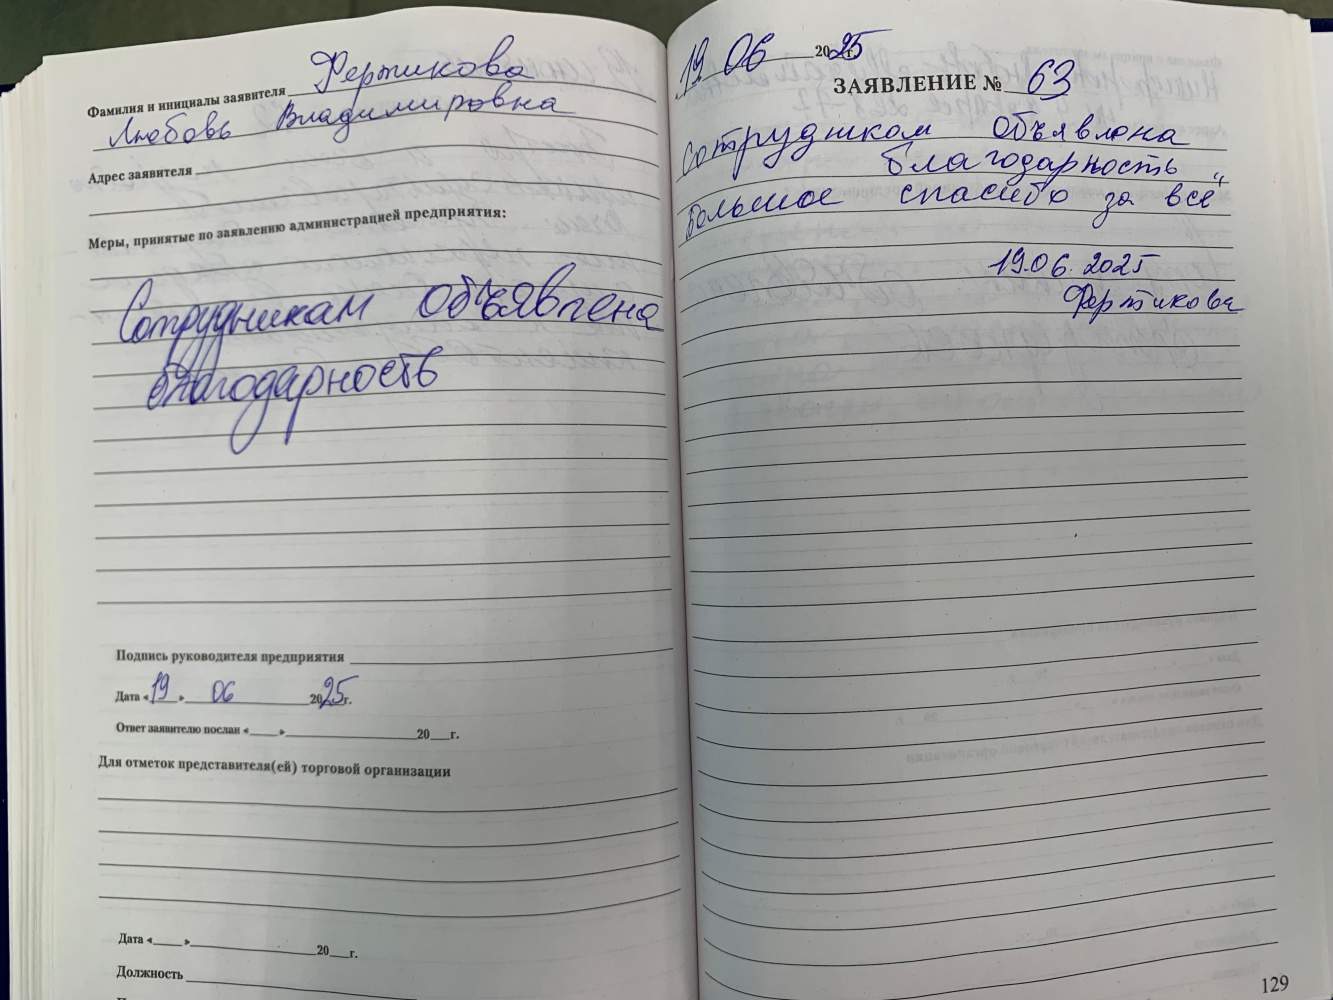 Фамилия и инициалы заявителя Фертикова
Любовь Владимировна
Адрес заявителя
Меры, принятые по заявлению администрацией предприятия:
Сотрудникам объявлена
благодарность
Подпись руководителя предприятия
Дата «19» 06 2025г.
Ответ заявителю послан «____»____________20___г.
Для отметок представителя(ей) торговой организации
Дата «____»____________20___г.
Должность
19 06 2025г.
ЗАЯВЛЕНИЕ № 63
Сотрудником объявлона
благодарность „
большое спасибо за все“
19.06.2025
Фертикова
129